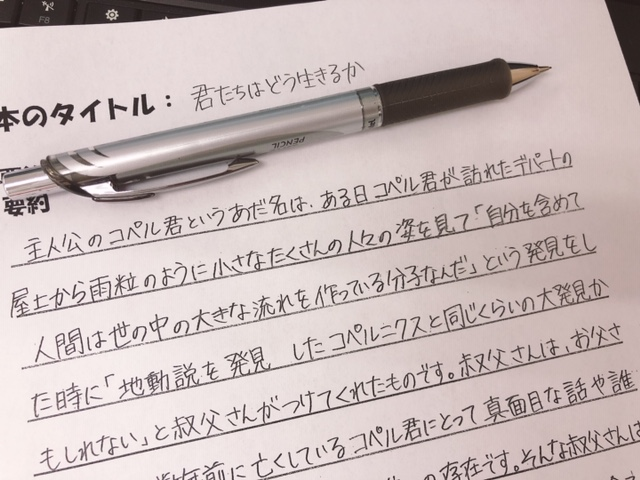 F8
本のタイトル： 君たちはどう生きるか
PENCIL
要約
主人公のコペル君というあだ名は、ある日コペル君が訪れたデパートの
屋上から雨粒のように小さなたくさんの人々の姿を見て「自分を含めて
人間は世の中の大きな流れを作っている分子なんだ」という発見をし
た時に「地動説を発見 したコペルニクスと同じくらいの大発見か
もしれない」と叔父さんがつけてくれたものです。叔父さんは、お父さ
年前に亡くしているコペル君にとって真面目な話や誰
の存在です。そんな叔父さんは